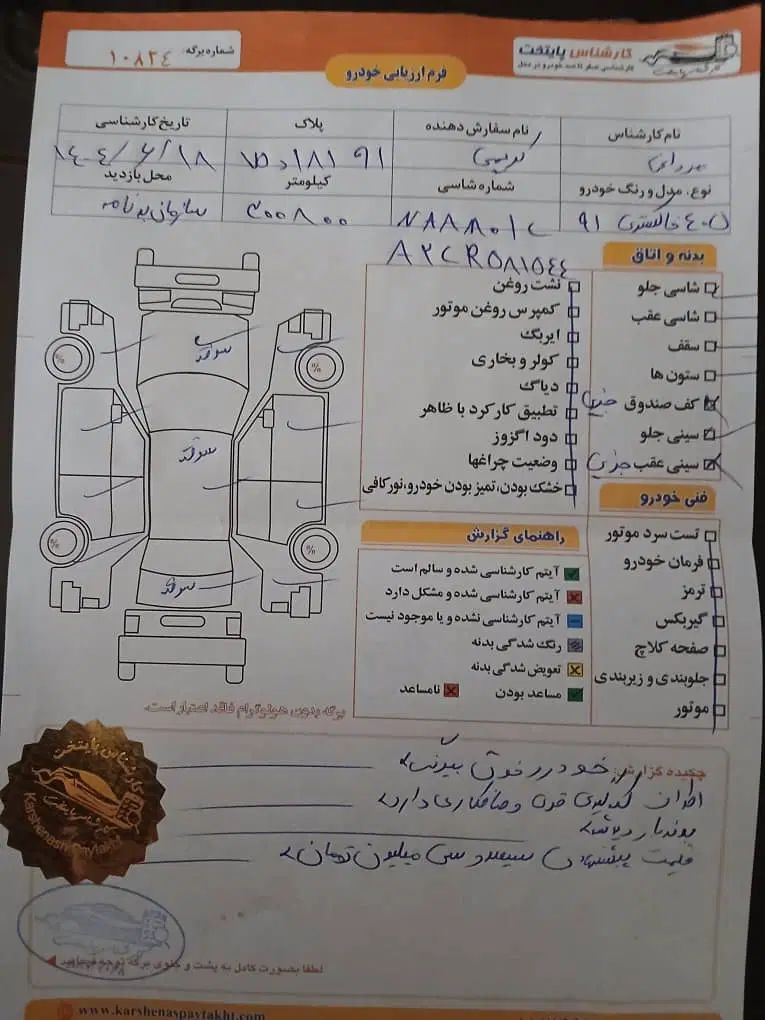 کارشناس پایتخت
شماره برگه: ۱۰۸۲۴
فرم ارزیابی خودرو
نام کارشناس
نام سفارش دهنده
پلاک
تاریخ کارشناسی
کریمی
۱۴۰۴/۶/۱۸
نوع، مدل و رنگ خودرو
شماره شاسی
کیلومتر
محل بازدید
خاکستری ۹۱
NAAM01C
A3CR581544
۲۰۰۸۰۰
بدنه و اتاق
شاسی جلو
شاسی عقب
سقف
ستون ها
کف صندوق جزیی
سینی جلو
سینی عقب جزیی
فنی خودرو
تست سرد موتور
فرمان خودرو
ترمز
گیربکس
صفحه کلاچ
جلوبندی و زیربندی
موتور
نشت روغن
کمپرس روغن موتور
ایربگ
کولر و بخاری
دیاگ
تطبیق کارکرد با ظاهر
دود اگزوز
وضعیت چراغها
خشک بودن، تمیز بودن خودرو، نور کافی
راهنمای گزارش
آیتم کارشناسی شده و سالم است
آیتم کارشناسی شده و مشکل دارد
آیتم کارشناسی نشده و یا موجود نیست
رنگ شدگی بدنه
تعویض شدگی بدنه
مساعد بودن
نامساعد
% % % %
برگه بدون هولوگرام فاقد اعتبار است.
چکیده گزارش:
خودرو فوق
و صافکاری دارد
قیمت پیشنهادی سیصد و سی میلیون تومان
کارشناس پایتخت
Karshenas Paytakht
لطفا بصورت کامل به پشت و جلوی برگه توجه فرمایید
www.karshenaspaytakht.com